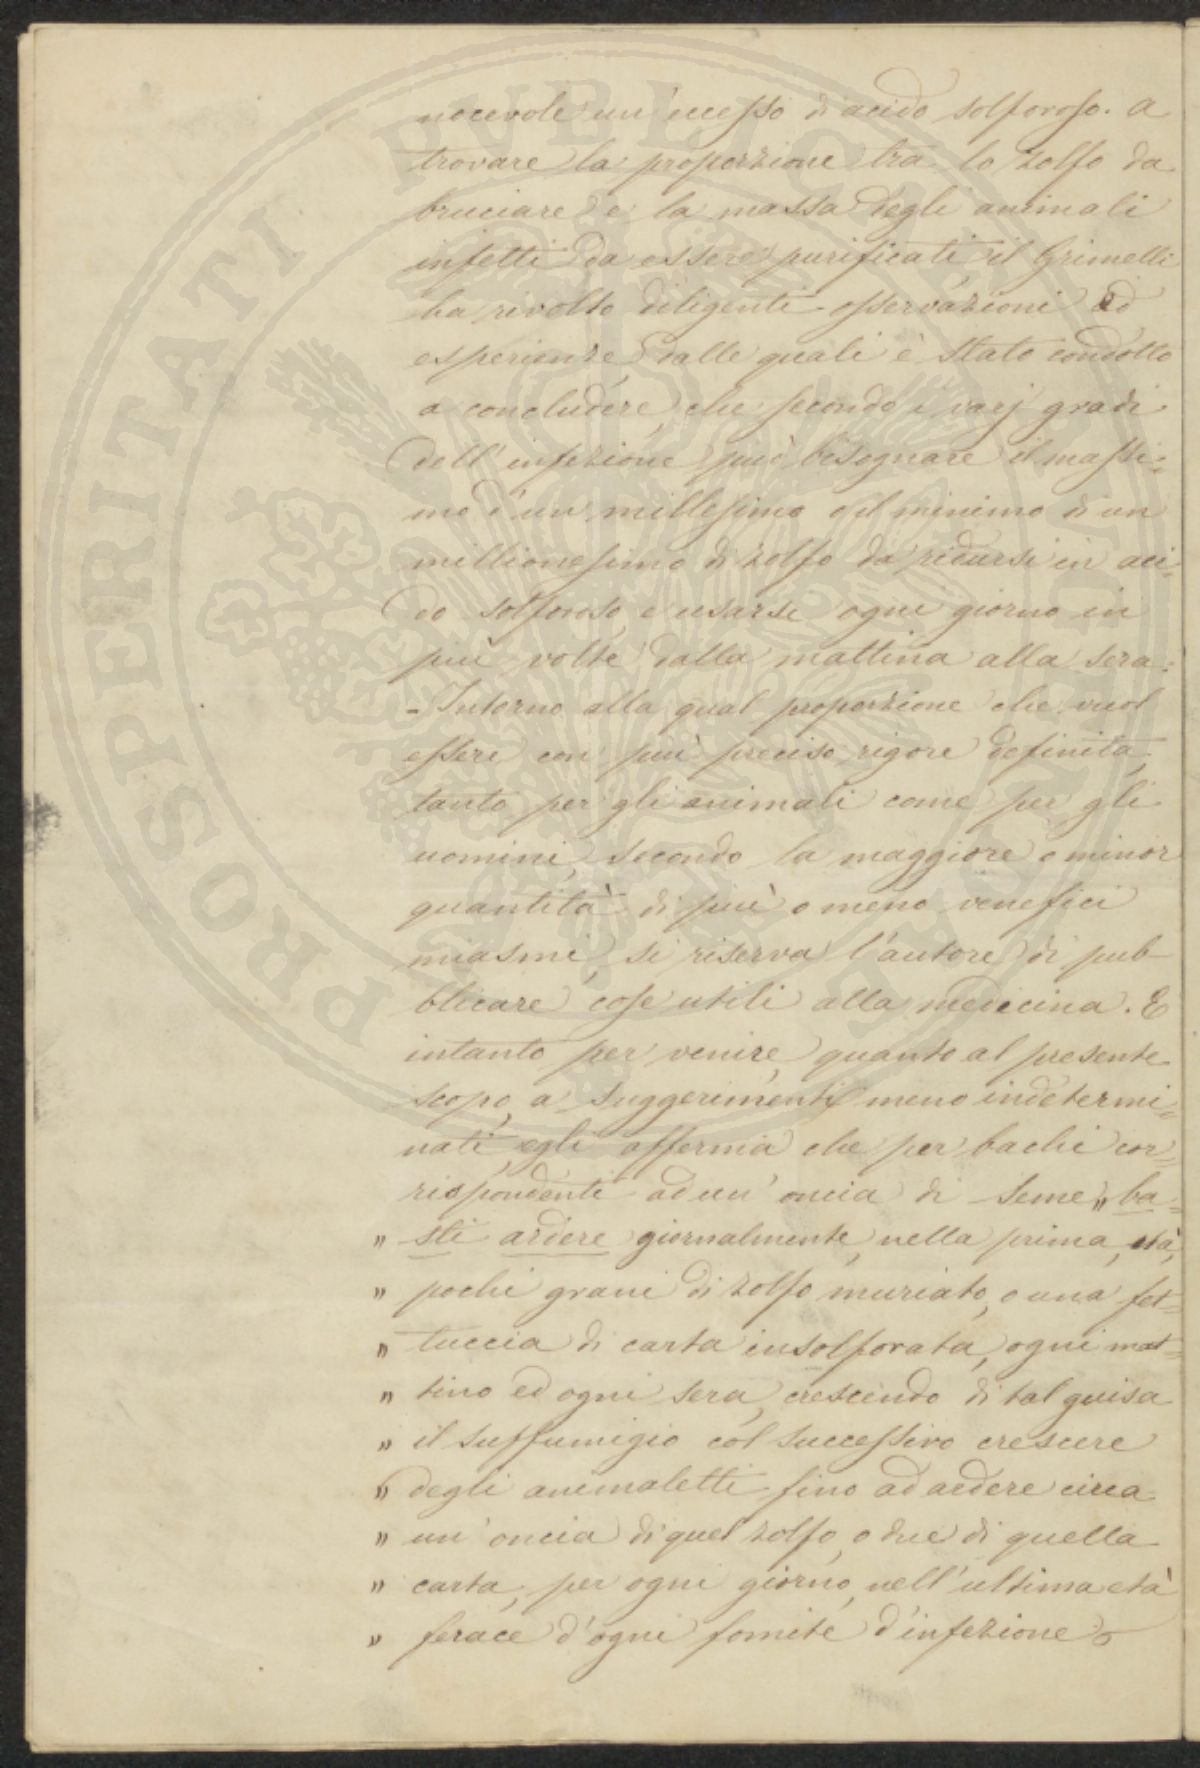 nocevole un eccesso di acido solforoso. A
trovare la proporzione tra lo zolfo da
bruciare e la massa degli animali
infetti da essere purificati, il Grimelli
ha rivolto diligenti osservazioni ed
esperienze, dalle quali è stato condotto
a concludere, che secondo i varj gradi
dell'infezione può bisognare il massi=
mo d'un millesimo o il minimo di un
millionesimo di zolfo da ridursi in aci=
do solforoso, e usarsi ogni giorno in
più volte dalla mattina alla sera.
- Intorno alla qual proporzione che vuol
essere con più preciso rigore definita,
tanto per gli animali come per gli
uomini, secondo la maggiore o minor
quantità di più o meno venefici
miasmi, si riserva l'autore di pub-
blicare cose utili alla medicina. E
intanto per venire, quanto al presente
scopo, a suggerimenti meno indetermi=
nati, egli afferma che per bachi cor=
rispondenti ad un'oncia di seme, „ ba=
„ sti ardere giornalmente, nella prima età,
„ pochi grani di zolfo muriato, o una fet=
„ tuccia di carta insolforata, ogni mat=
„ tino ed ogni sera, crescendo di tal guisa
„ il suffumigio col successivo crescere
„ degli animaletti fino ad ardere circa
„ un'oncia di quel zolfo, o due di quella
„ carta, per ogni giorno, nell'ultima età
„ ferace d'ogni fomite d'infezione
PROSPERITATI PVBLICAE